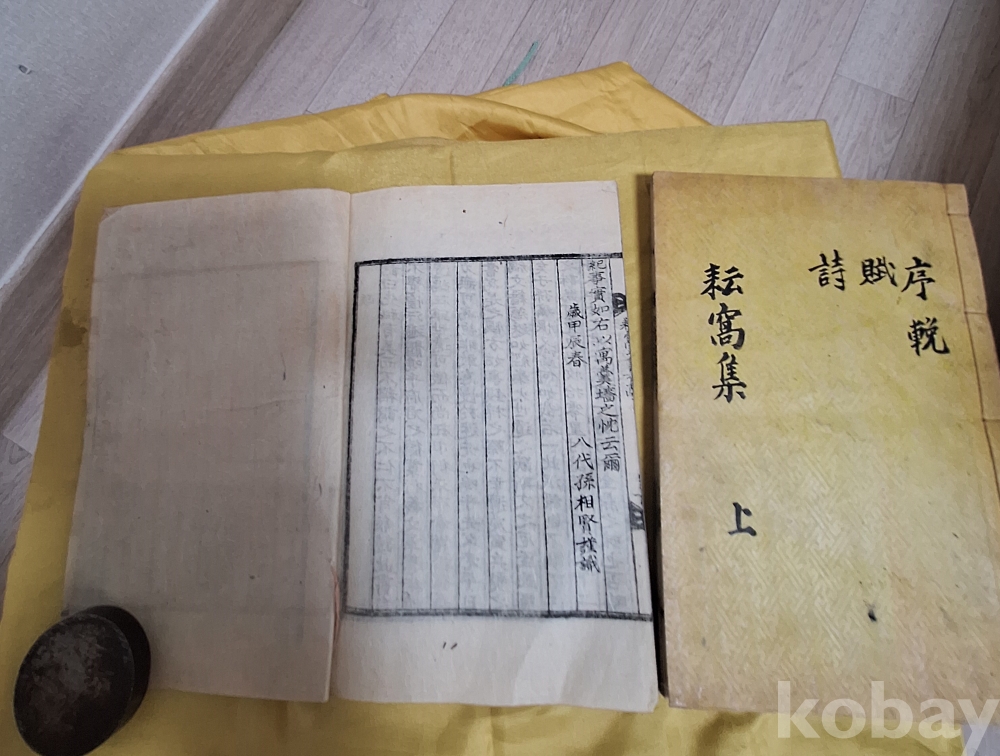 紀事實如右以寓羹墻之忱云爾
歲甲辰春
八代孫相賢謹識
序
輓
賦
詩
耘窩集
上
kobay